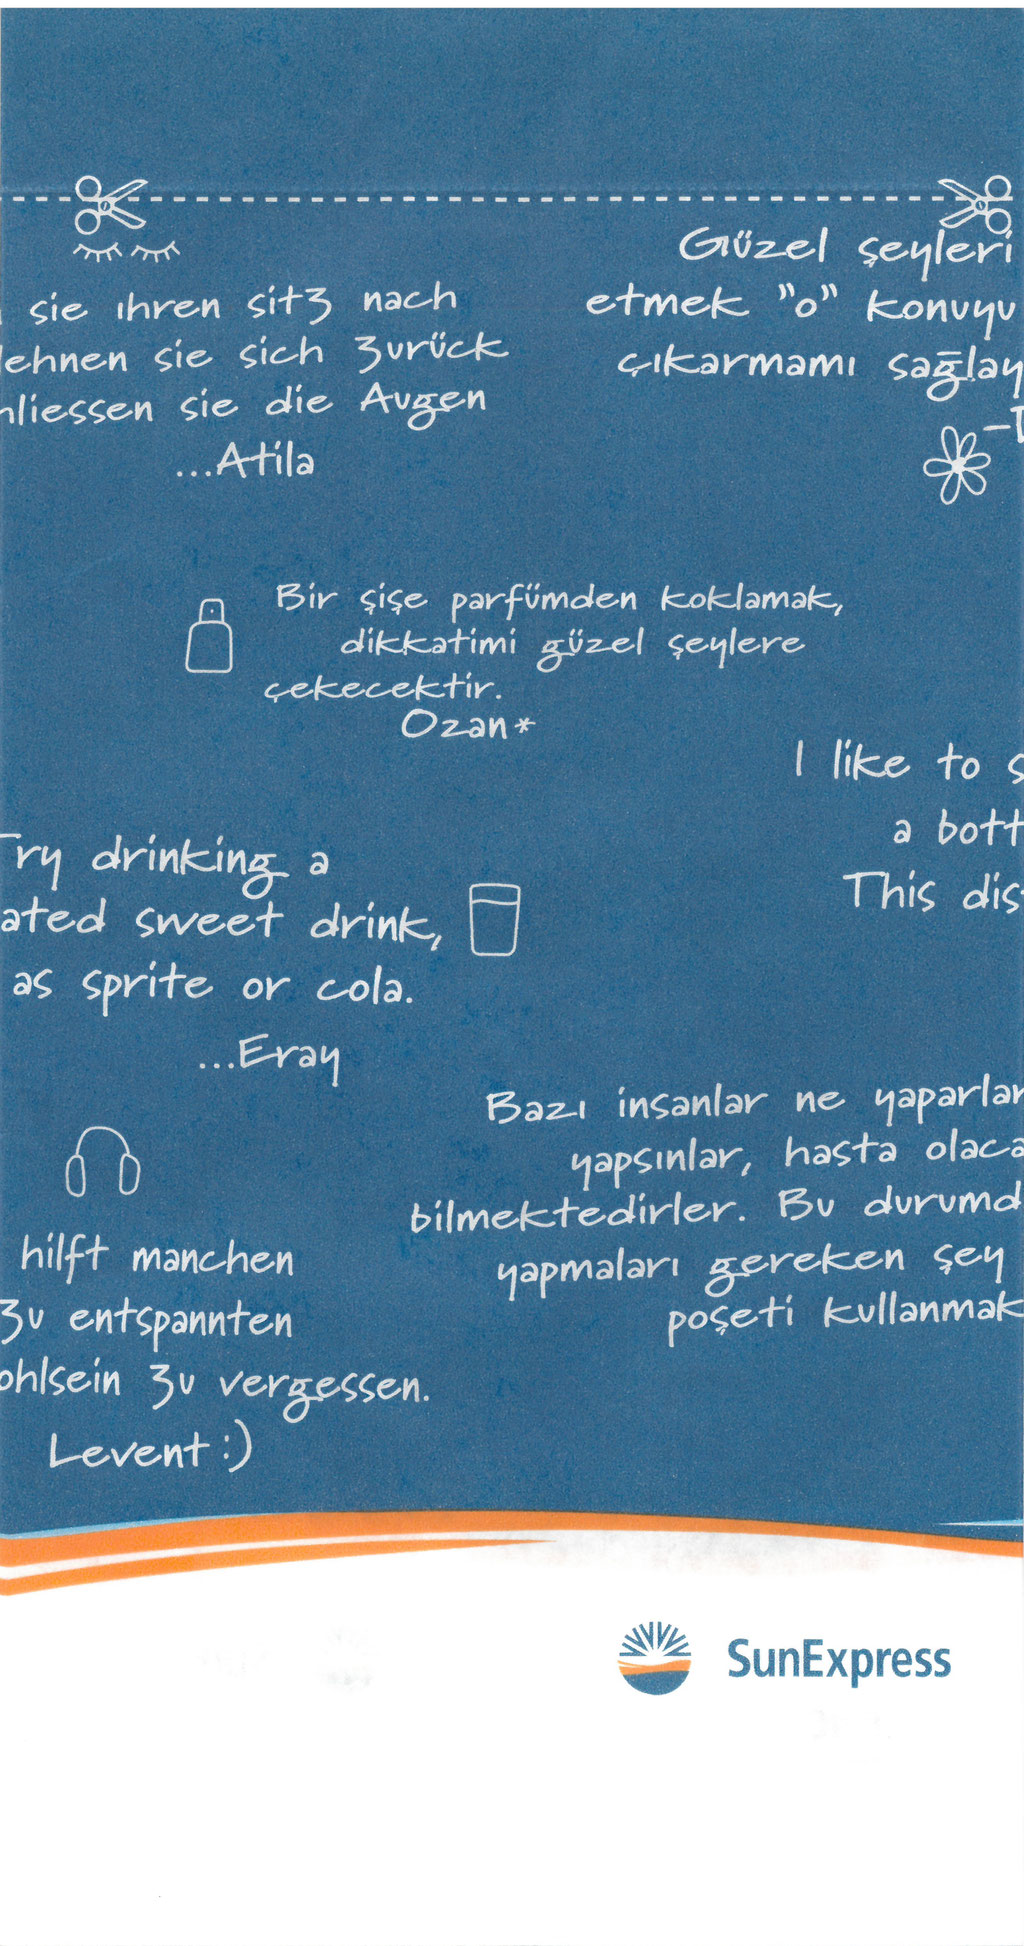 sie ıhren sitz nach
lehnen sie sich zurück
hliessen sie die Augen
...Atila
Güzel şeyleri
etmek "o" konuyu
çıkarmamı sağlay
Bir şişe parfümden koklamak,
dikkatimi güzel şeylere
çekecektir.
Ozan*
I like to s
a bott
This dis
Try drinking a
ated sweet drink,
as sprite or cola.
...Eray
Bazı insanlar ne yaparlar
yapsınlar, hasta olaca
bilmektedirler. Bu durumd
yapmaları gereken şey
poşeti kullanmak
hilft manchen
zu entspannten
ohlsein zu vergessen.
Levent :)
SunExpress